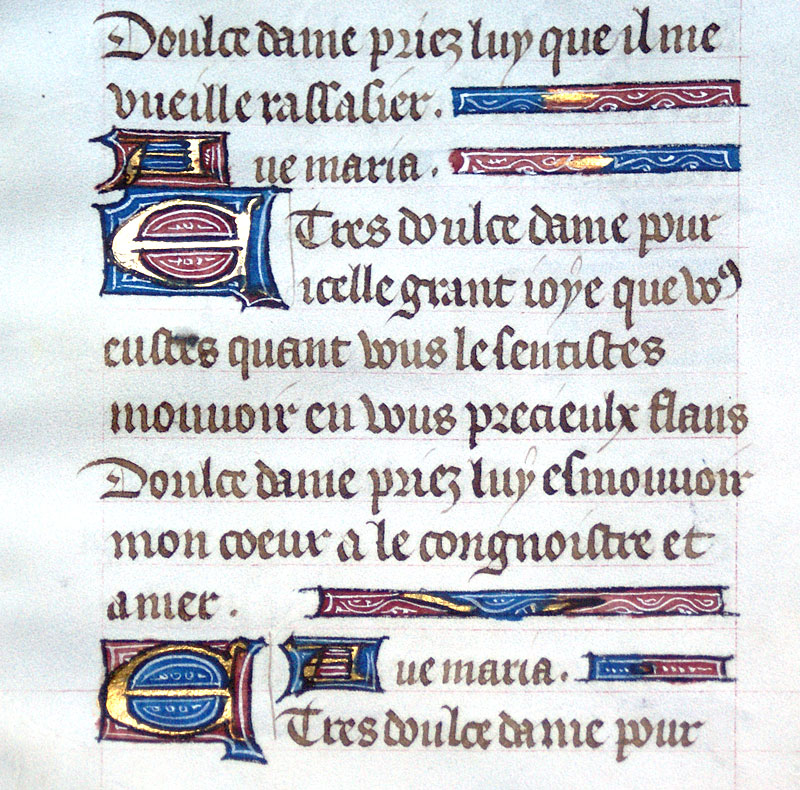 Doulce dame priez luy que il me
vueille rassasier.
Aue maria.
E Tres doulce dame pour
icelle grant ioye que voꝰ
eustes quant vous le sentistes
mouuoir en vous precieulx flans
Doulce dame priez luy esmouuoir
mon coeur a le congnoistre et
amer.
Aue maria.
E Tres doulce dame pour